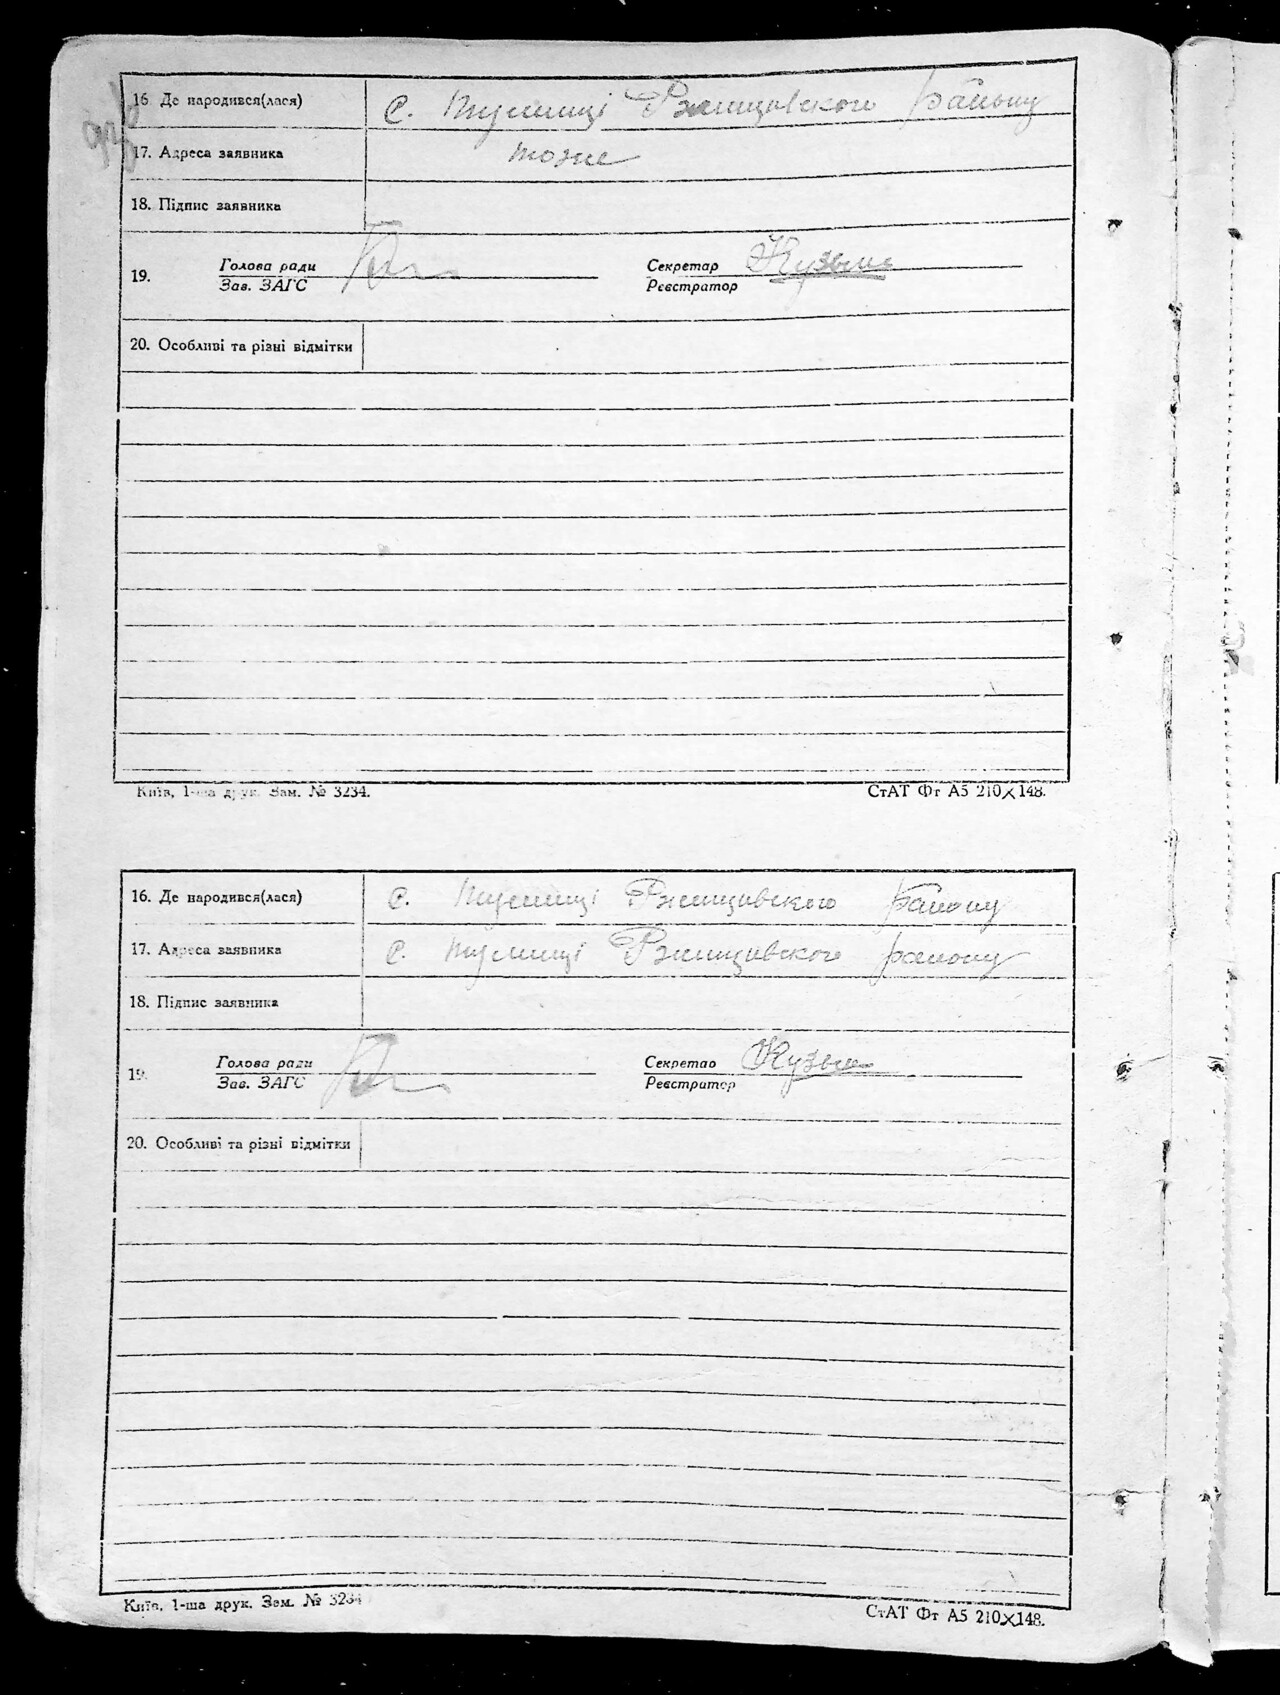 16. Де народився(лася) с. Тулинці Ржищовского району
17. Адреса заявника тоже
18. Підпис заявника
19. Голова ради
Зав. ЗАГС
Секретар
Реєстратор
20. Особливі та різні відмітки
Київ, 1-ша друк. Зам. № 3234.
СтАТ Фт А5 210×148.
16. Де народився(лася) с. Тулинці Ржищовского району
17. Адреса заявника с. Тулинці Ржищовского району
18. Підпис заявника
19. Голова ради
Зав. ЗАГС
Секретар
Реєстратор
20. Особливі та різні відмітки
Київ, 1-ша друк. Зам. № 3234
СтАТ Фт А5 210×148.